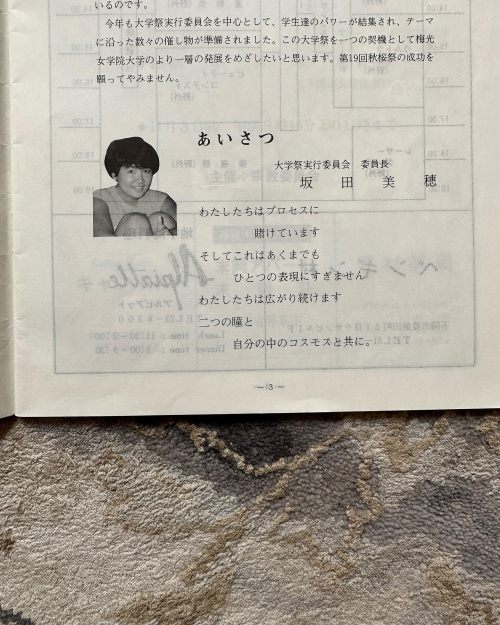 いるのです。
今年も大学祭実行委員会を中心として、学生達のパワーが結集され、テーマ
に沿った数々の催し物が準備されました。この大学祭を一つの契機として梅光
女学院大学のより一層の発展をめざしたいと思います。第19回秋桜祭の成功を
願ってやみません。
あいさつ
大学祭実行委員会 委員長
坂田美穂
わたしたちはプロセスに
賭けています
そしてこれはあくまでも
ひとつの表現にすぎません
わたしたちは広がり続けます
二つの瞳と
自分の中のコスモスと共に。
—3—